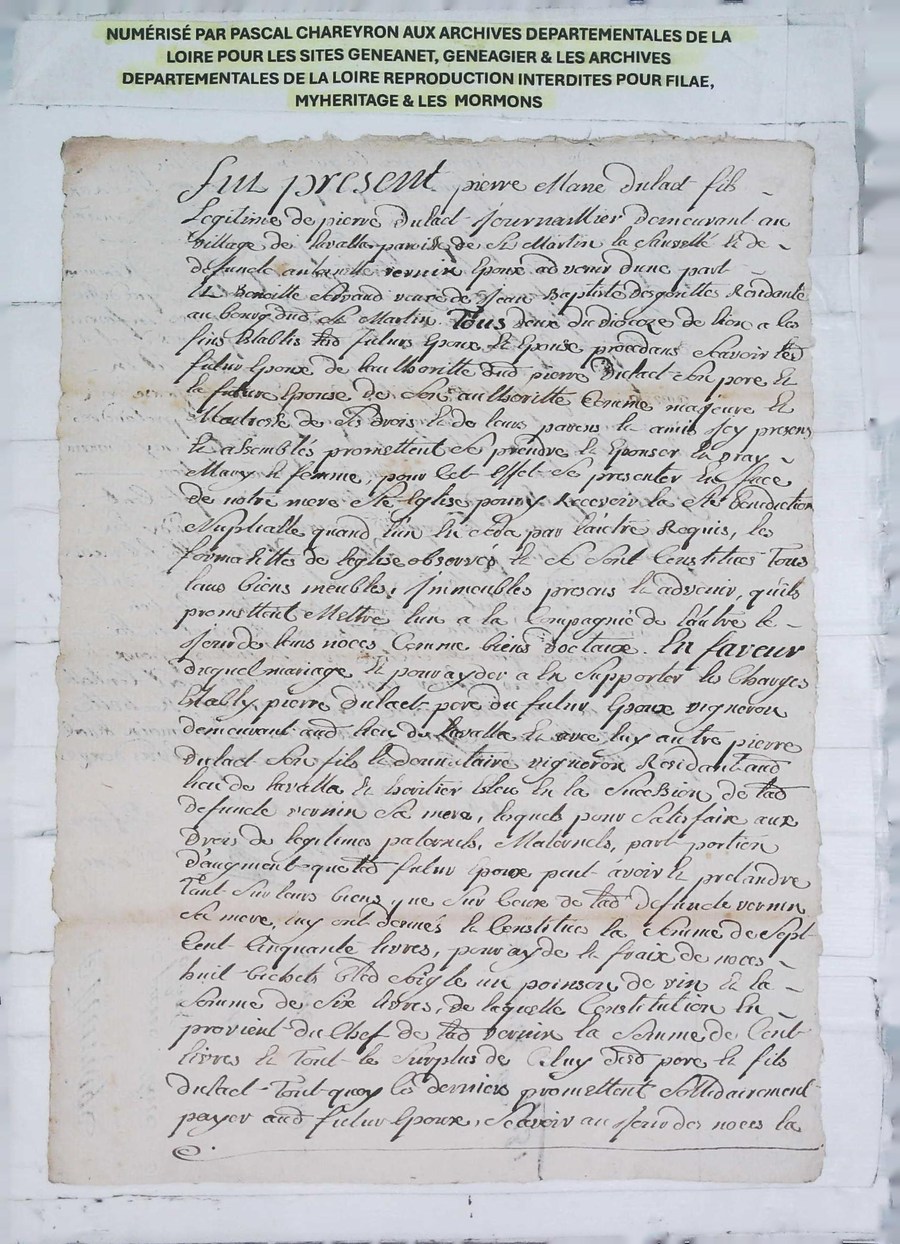 NUMÉRISÉ PAR PASCAL CHAREYRON AUX ARCHIVES DEPARTEMENTALES DE LA
LOIRE POUR LES SITES GENEANET, GENEAGIER & LES ARCHIVES
DEPARTEMENTALES DE LA LOIRE REPRODUCTION INTERDITES POUR FILAE,
MYHERITAGE & LES MORMONS
fut present pierre Marie Dulact fils
Legitime de pierre Dulact Journaillier Demeurant au
village de lavalla paroisse de St Martin la Sauveté et de
defuncte vernin Epoux advenir dune part
Et Benoitte veuve de Jean Baptiste Desgouttes Residante
au bourg dud St Martin. Tous deux du dioceze de lion a les
fins Etablis led futurs Epoux et Epouse procedans Scavoir led
futur Epoux de lauthoritté dud pierre Dulact Son pere et
la future Epouse de Son authoritté Comme majeure et
Maitresse de Ses Drois et de leurs parens et amis Jcy presens
et assemblés promettent Se prendre et Epouser En vray
Mary et femme, pour Cet Effet Se presenter En face
de notre mere Ste Eglise pour y Recevoir la Ste Benediction
Nuptialle quand l'un En Sera par l'autre Requis, les
formalittés de leglise observés et Se Sont Constitués Tous
leurs biens meubles, Jmmeubles presens et advenir, qu'ils
promettent Mettre lun a la Compagnie de l'autre le
Jour de leurs noces Comme biens doctaux. En faveur
duquel mariage Et pour ayder a En Supporter les Charges
Etably pierre Dulact pere du futur Epoux vigneron
demeurant aud lieu de lavalla Et avec luy autre pierre
Dulact Son fils et donnataire vigneron Residant aud
lieu de lavalla Et heritier Eleu En la Succession de lad
defuncte vernin Sa mere, lesquels pour Satisfaire aux
Drois de legitimes paternels, Maternels, part portion
D'augment que led futur Epoux peut avoir et pretandre
Tant Sur leurs biens que Sur Ceux de lad defuncte vernin
Sa mere, luy ont donnés et Constitués la Somme de Sept
Cent Cinquante livres, pour ayde et fraix de noces
huit bichets bled Soigle un poinson de vin Et la
Somme de Six livres, de laquelle Constitution En
provient du Chef de lad vernin la Somme de Cent
livres et Tout le Surplus de Celuy Desd pere et fils
Dulact Tout quoy les derniers promettent Sollidairement
payer aud futur Epoux, Scavoir au Jour des noces la